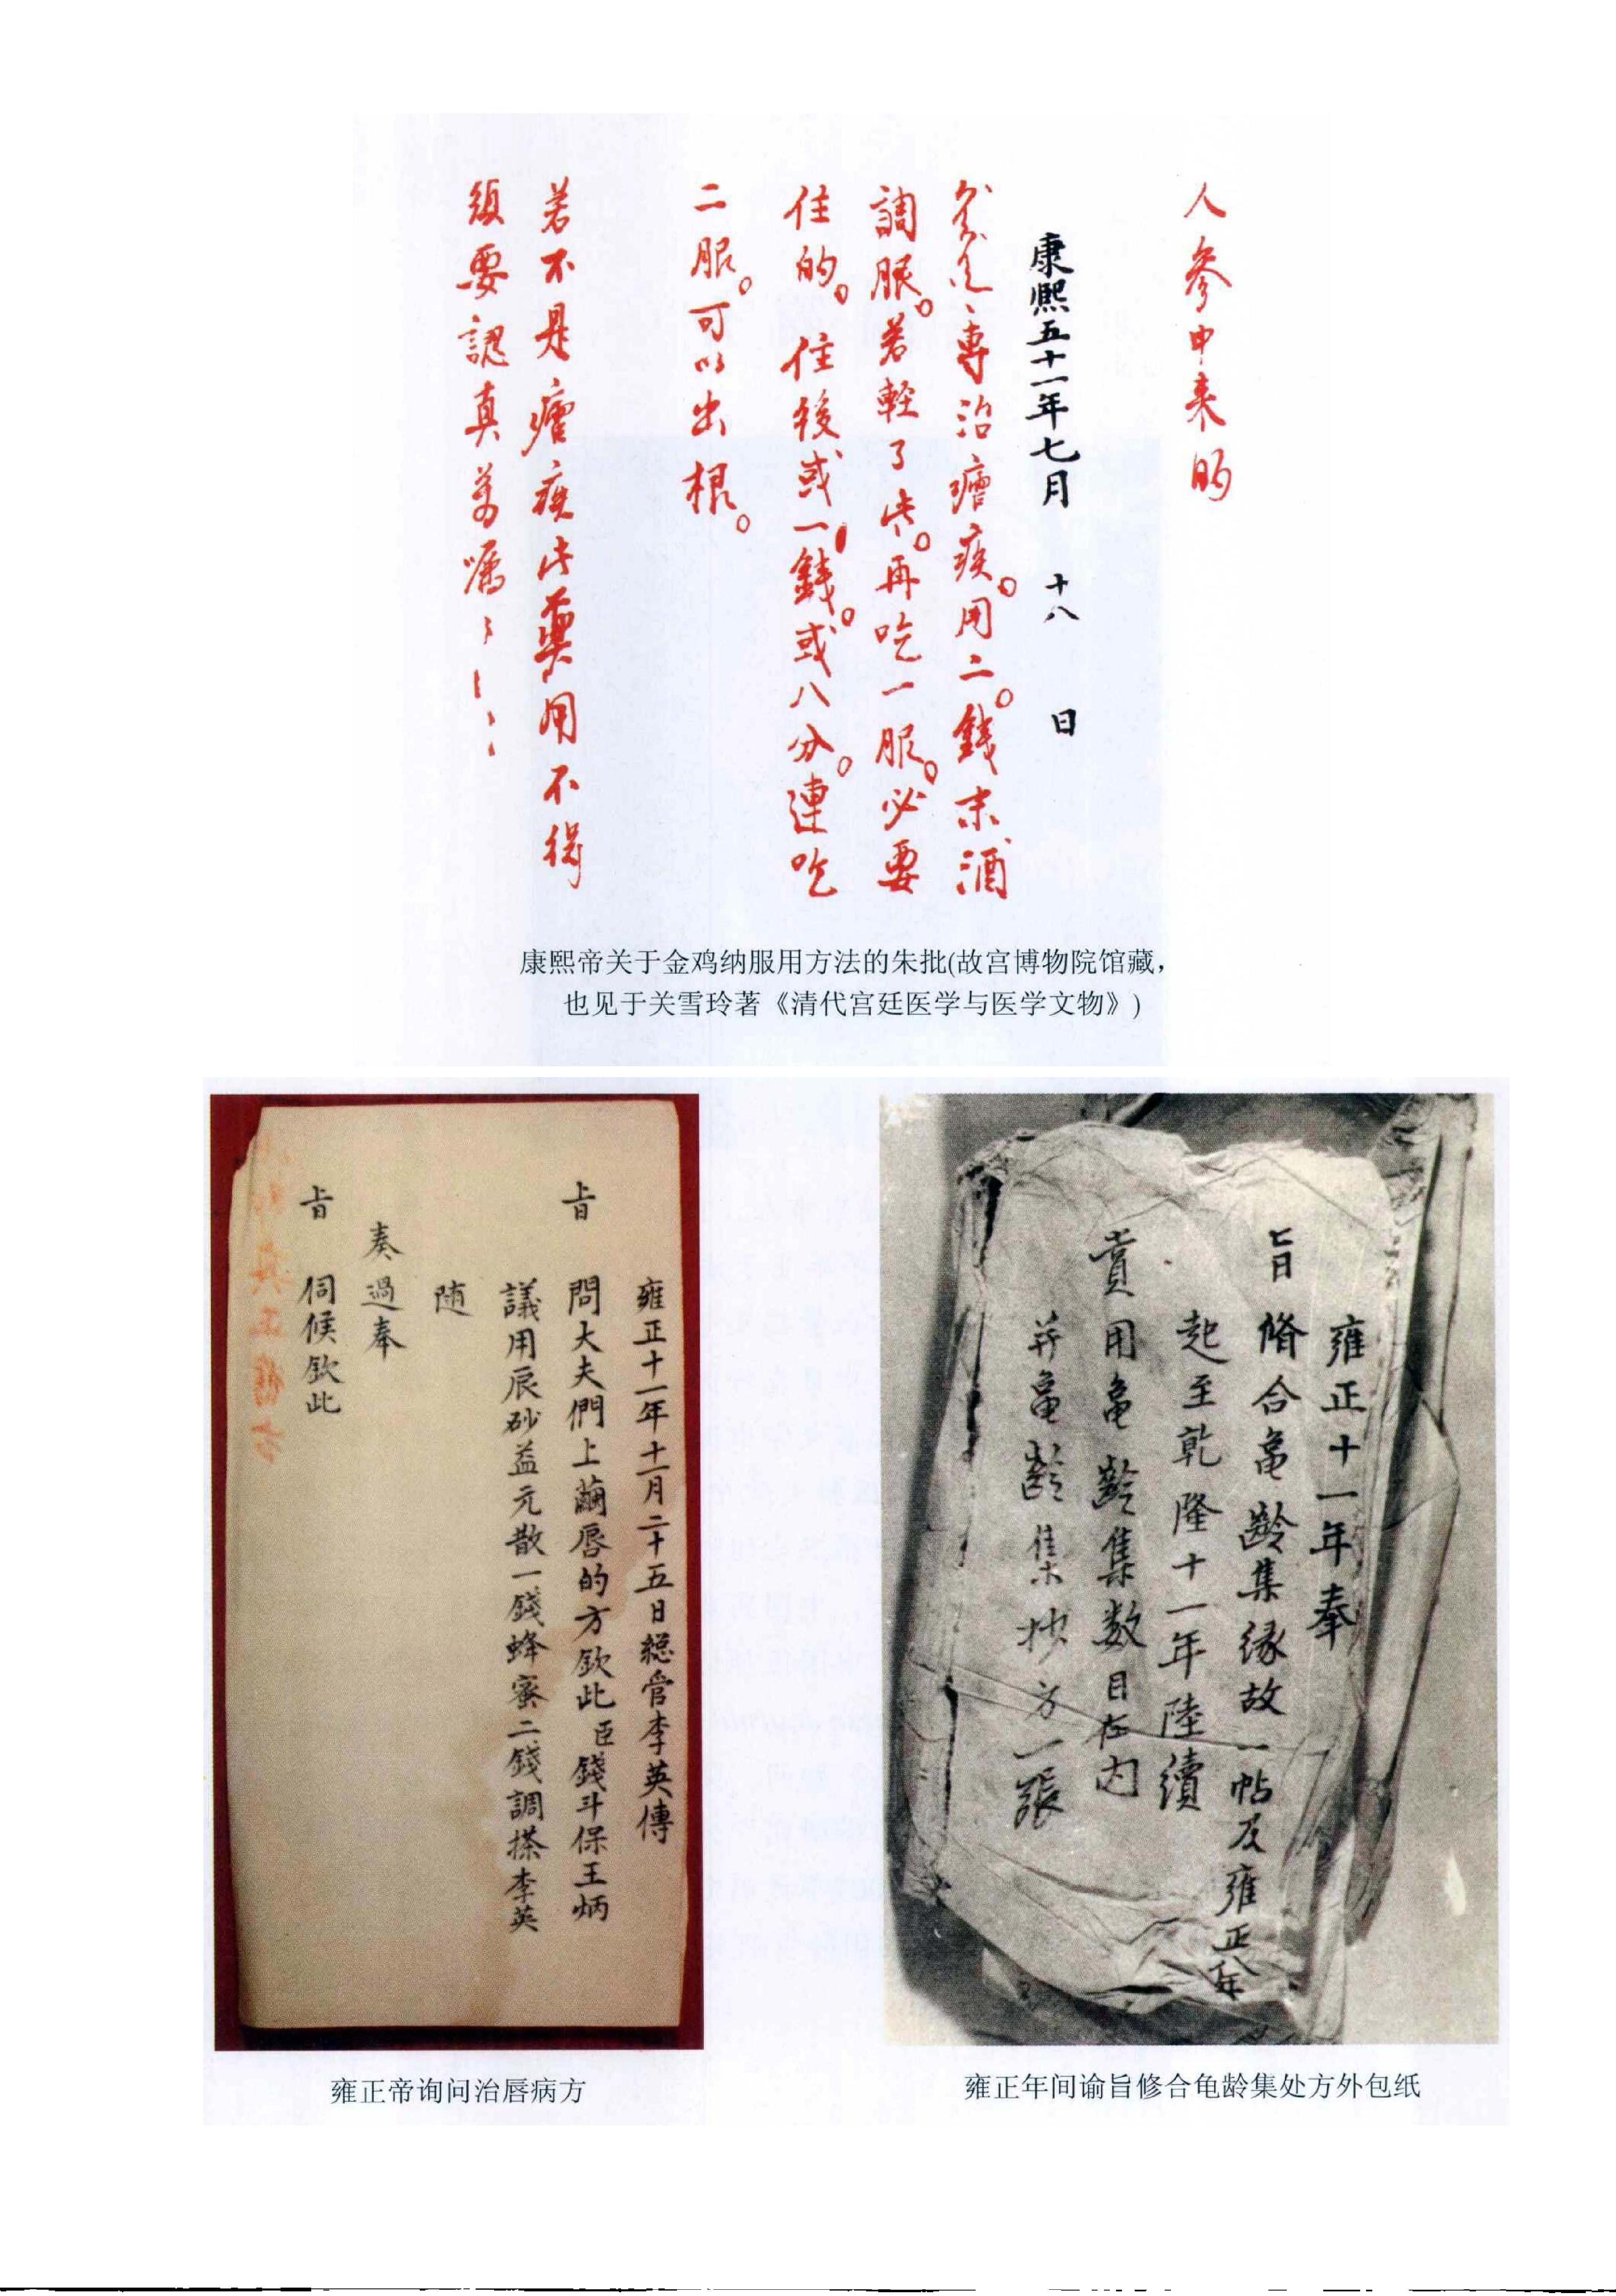 人參申来的
康熙五十一年七月 十八 日
專治瘧疾。用二。錢末酒
調服。若輕了些。再吃一服。必要
住的。住後或一錢。或八分。連吃
二服。可以出根。
若不是瘧疾此藥用不得
須要認真萬嘱
康熙帝关于金鸡纳服用方法的朱批(故宫博物院馆藏，
也见于关雪玲著《清代宫廷医学与医学文物》)
雍正十一年十一月二十五日総管李英傳
旨 問大夫們上繭唇的方欽此臣錢斗保王炳
議用辰砂益元散一錢蜂蜜二錢調搽李英
随
奏過奉
旨 伺候欽此
雍正帝询问治唇病方
雍正十一年奉
旨 脩合龜齡集缘故一帖及雍正年
起至乾隆十一年陸續
賞用龜齡集数目在内
并龜齡集抄方一張
雍正年间谕旨修合龟龄集处方外包纸